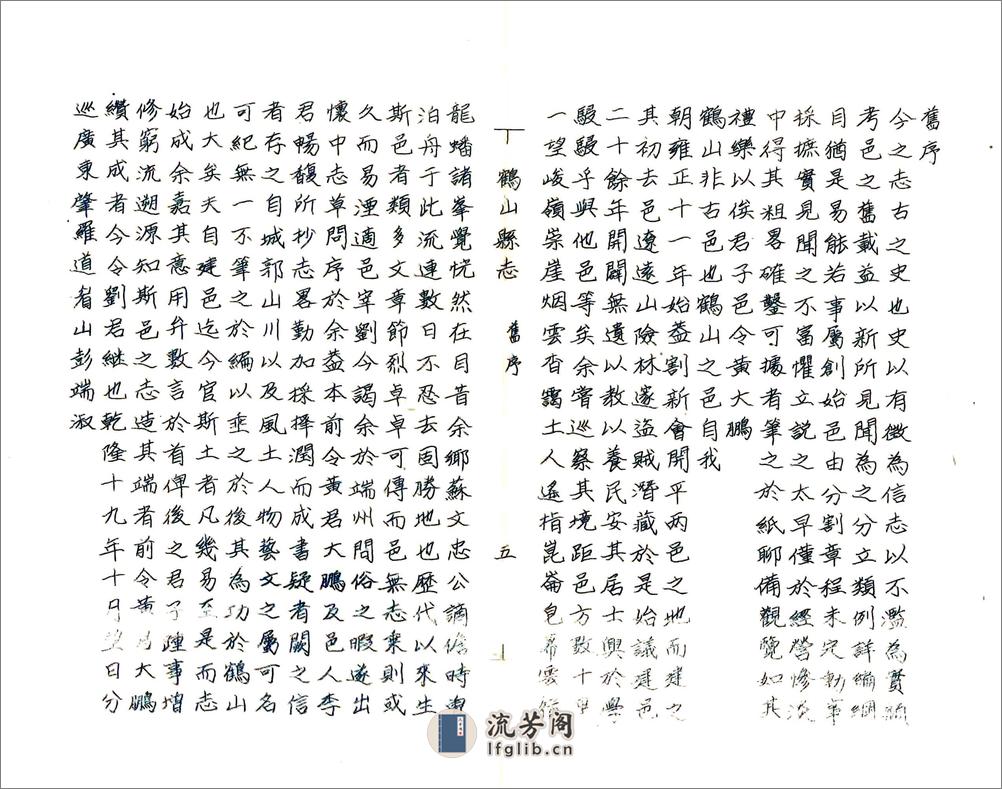 舊序
今之志古之史也史以有徵為信志以不濫為貴顧
考邑之舊載益以新所見聞為之分立類例詳編綱
目猶是易能若事屬創始邑由分割章程未定勒筆
採摭實見聞之不富懼立說之太早僅於經營慘淡
中得其粗畧確鑿可據者筆之於紙聊備觀覽如其
禮樂以俟君子邑令黃大鵬
鶴山非古邑也鶴山之邑自我
朝雍正十一年始益割新會開平兩邑之地而建之
其初去邑遼遠山險林邃盜賊潛藏於是始議建邑
二十餘年開闢無遺以教以養民安其居士興於學
駸駸乎與他邑等矣余嘗巡察其境距邑方數十里
一望峻嶺崇崖烟雲杳靄土人遥指崑崙皂幕雲
鶴山縣志
舊序
五
龍蟠諸峯覺恍然在目昔余鄉蘇文忠公謫儋時
泊舟于此流連數日不忍去固勝地也歷代以來生
斯邑者類多文章節烈卓卓可傳而邑無志乘則或
久而易湮適邑宰劉今謁余於端州問俗之暇遂出
懷中志草問序於余益本前令黃君大鵬及邑人李
君暢馥所抄志畧勤加採擇潤而成書疑者闕之信
者存之自城郭山川以及風土人物藝文之屬可名
可紀無一不筆之於編以垂之於後其為功於鶴山
也大矣夫自建邑迄今官斯土者凡幾易至是而志
始成余嘉其意用弁數言於首俾後之君子踵事增
修窮流溯源知斯邑之志造其端者前令黃君大鵬
纘其成者今令劉君継也乾隆十九年十月望日分
巡廣東肇羅道眉山彭端淑
流芳阁
lfglib.cn